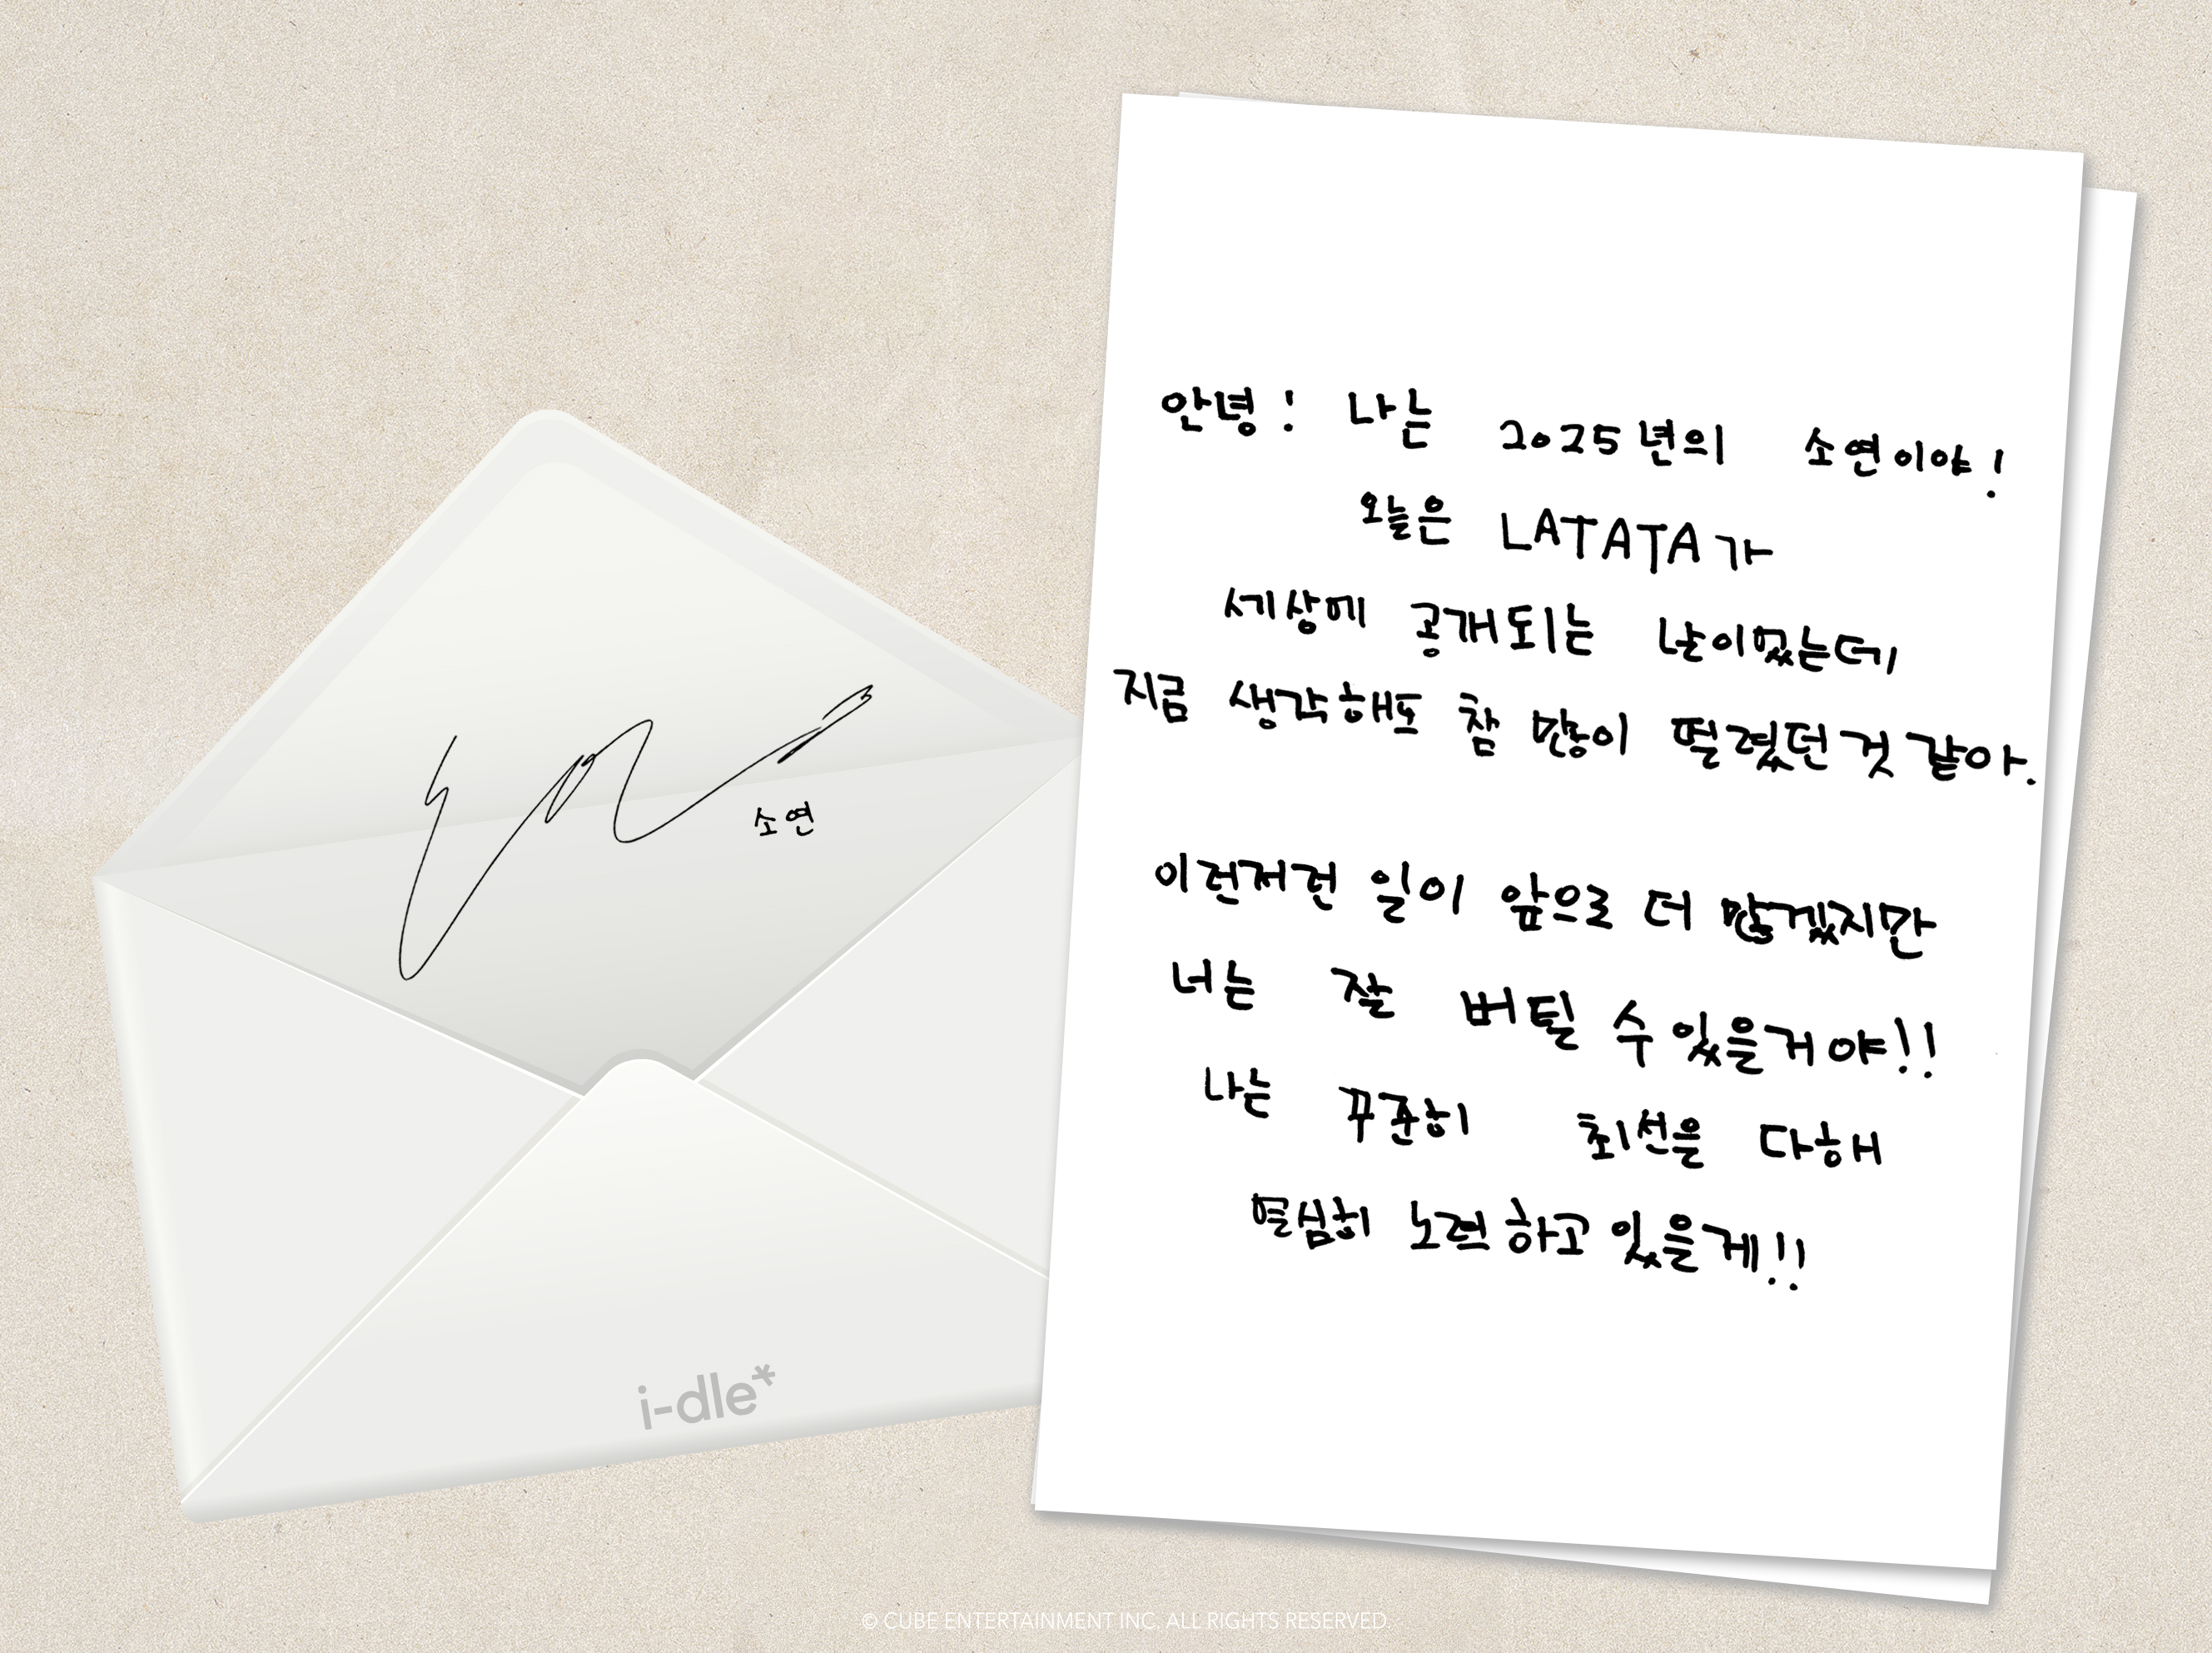 안녕! 나는 2025년의 소연이야!
오늘은 LATATA가
세상에 공개되는 날이였는데
지금 생각해도 참 많이 떨렸던것 같아.
이런저런 일이 앞으로 더 많겠지만
너는 잘 버틸 수 있을거야!!
나는 꾸준히 최선을 다해
열심히 노련하고 있을게!!
소연
i-dle*
© CUBE ENTERTAINMENT INC. ALL RIGHTS RESERVED.